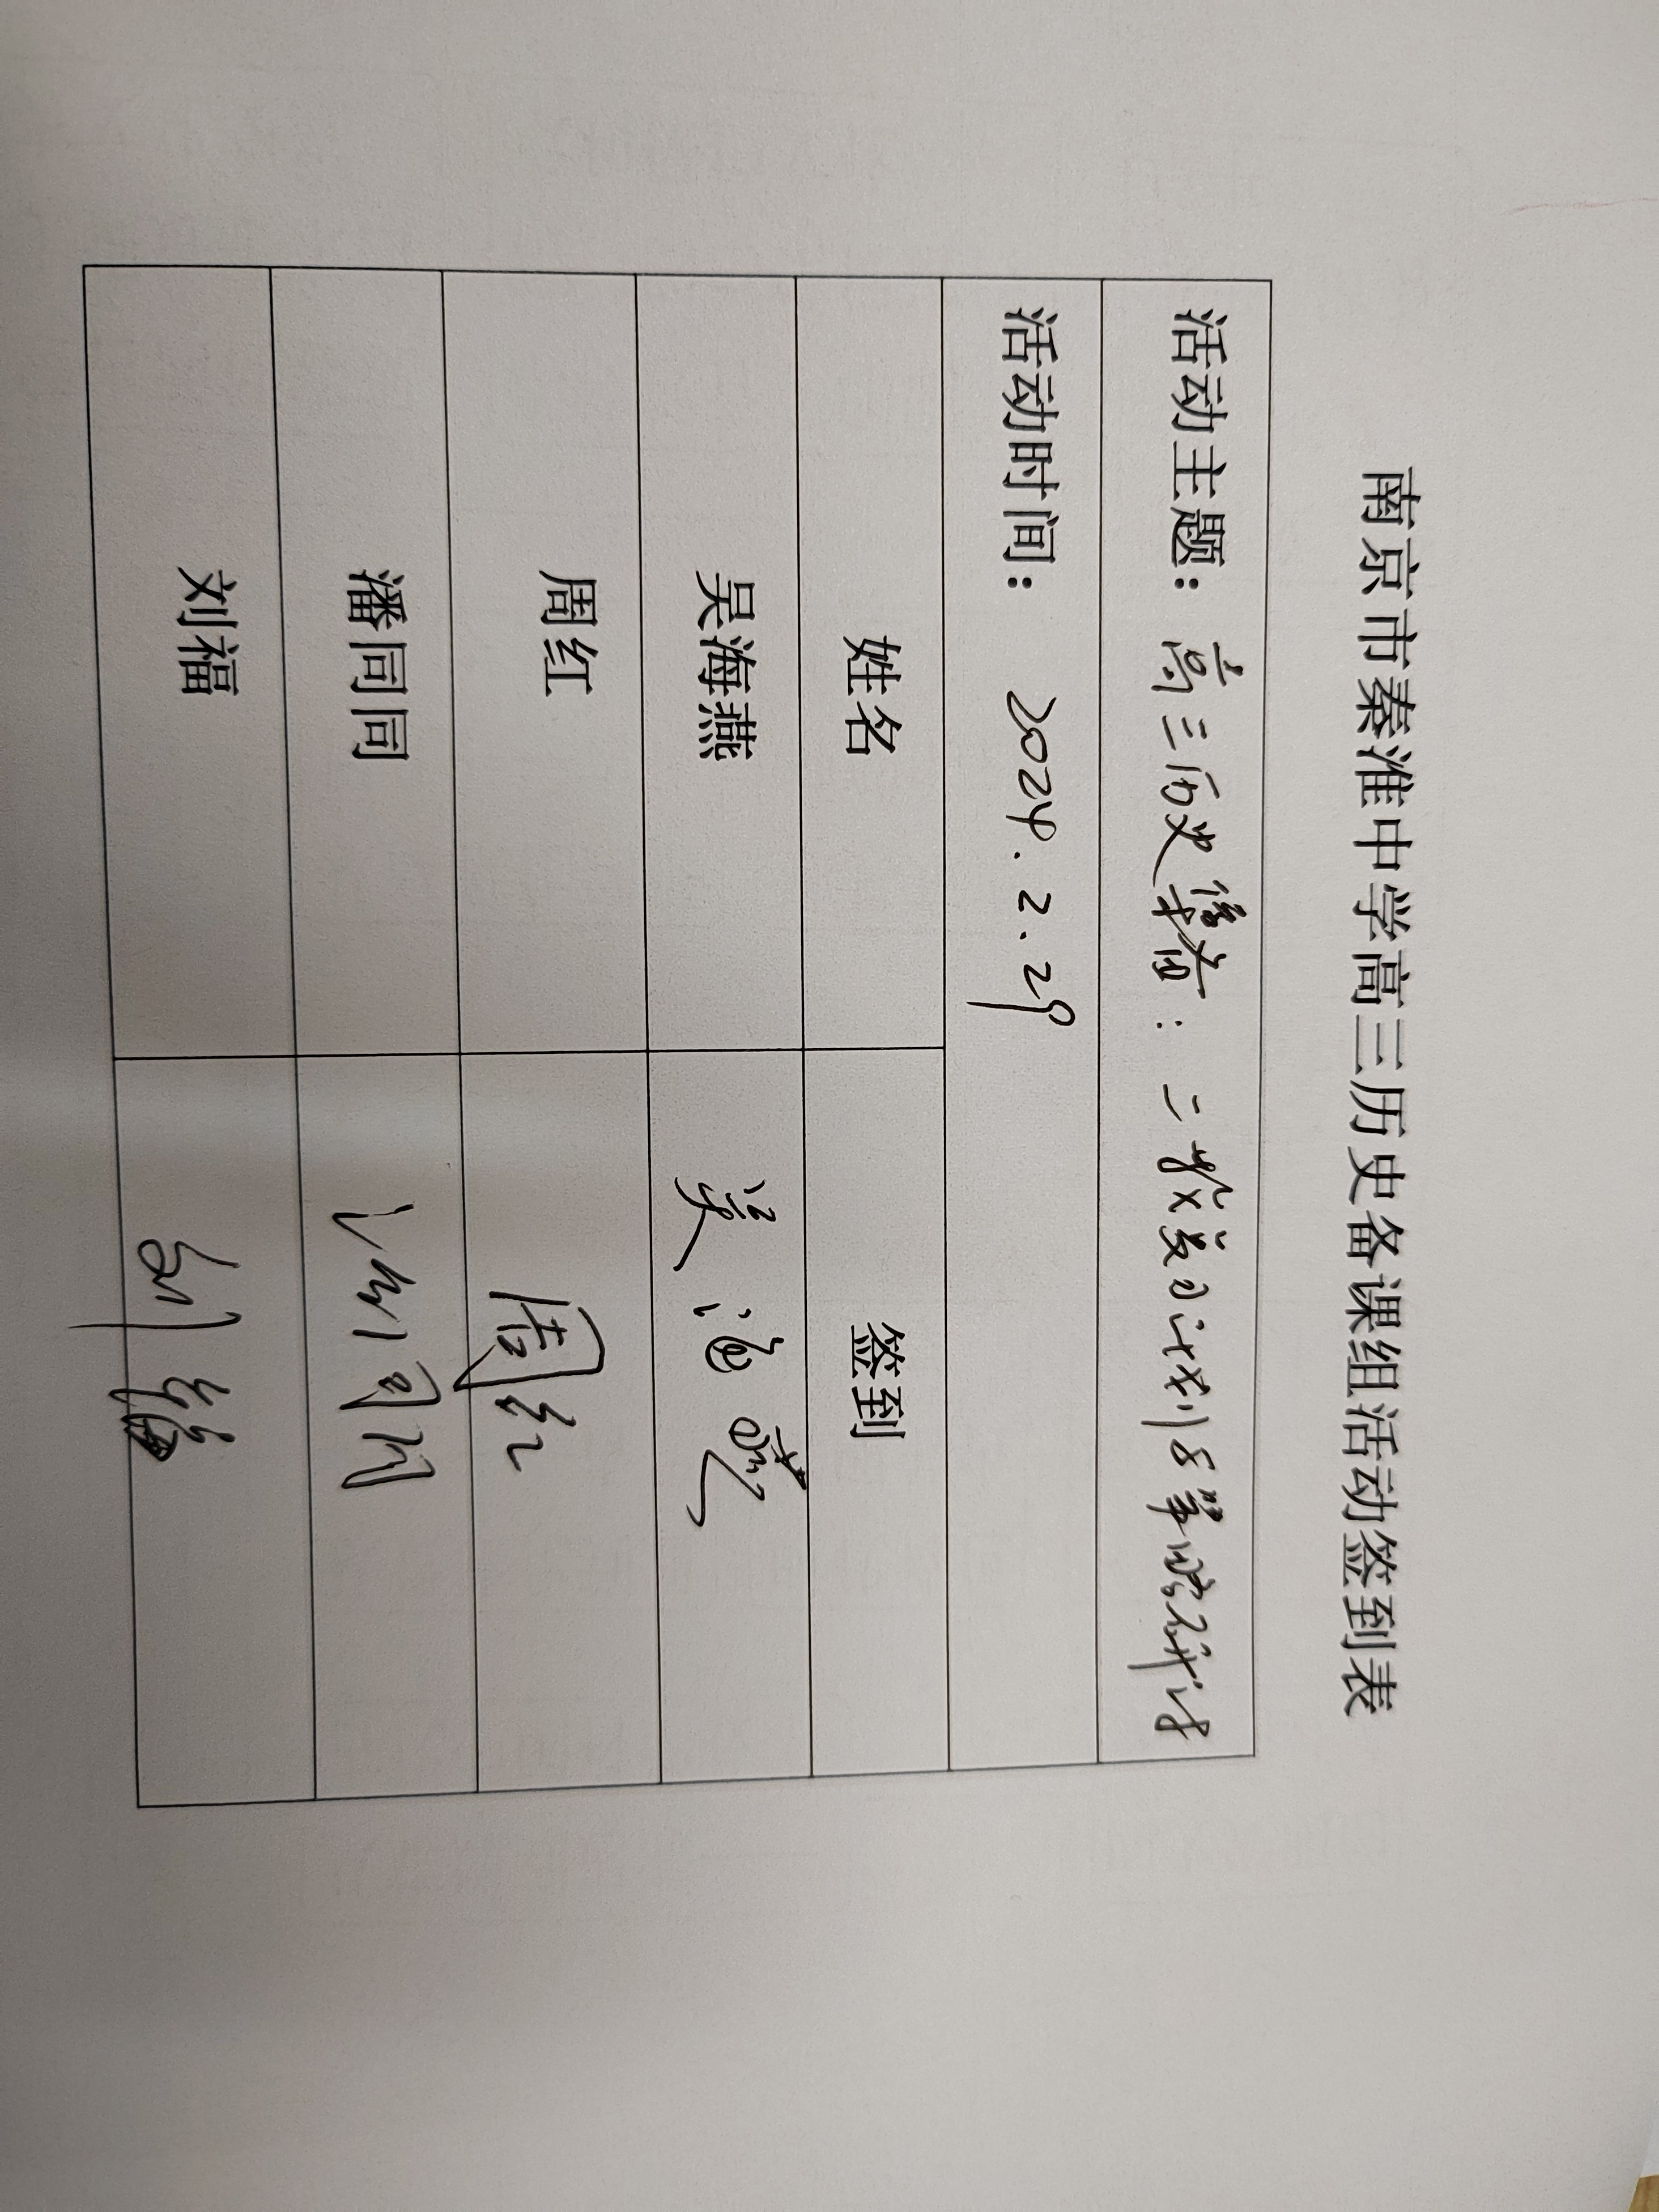 南京市秦淮中学高三历史备课组活动签到表
活动主题：高三历史集备：二轮复习计划与策略研讨
活动时间：2024.2.29
姓名 签到
吴海燕 吴海燕
周红 周红
潘同同 潘同同
刘福 刘福